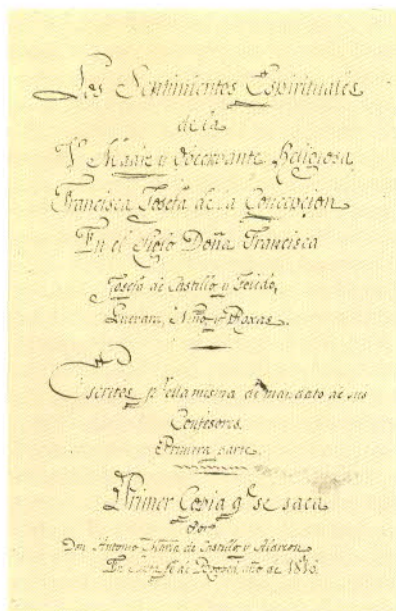 Los Sentimientos Espirituales
de la
Ve. Madre y Obcervante Religiosa
Francisca Josefa de la Concepcion
En el Siglo Doña Francisca
Josefa de Castillo y Toledo,
Guevara, Niño, y Roxas.
Escritos pr. ella mesma de mandato de sus
Confesores.
Primera parte.
Primer Copia qe. se saca
Por
Don Antonio Maria de Castillo y Alarcon
En Santa fé de Bogotá año de